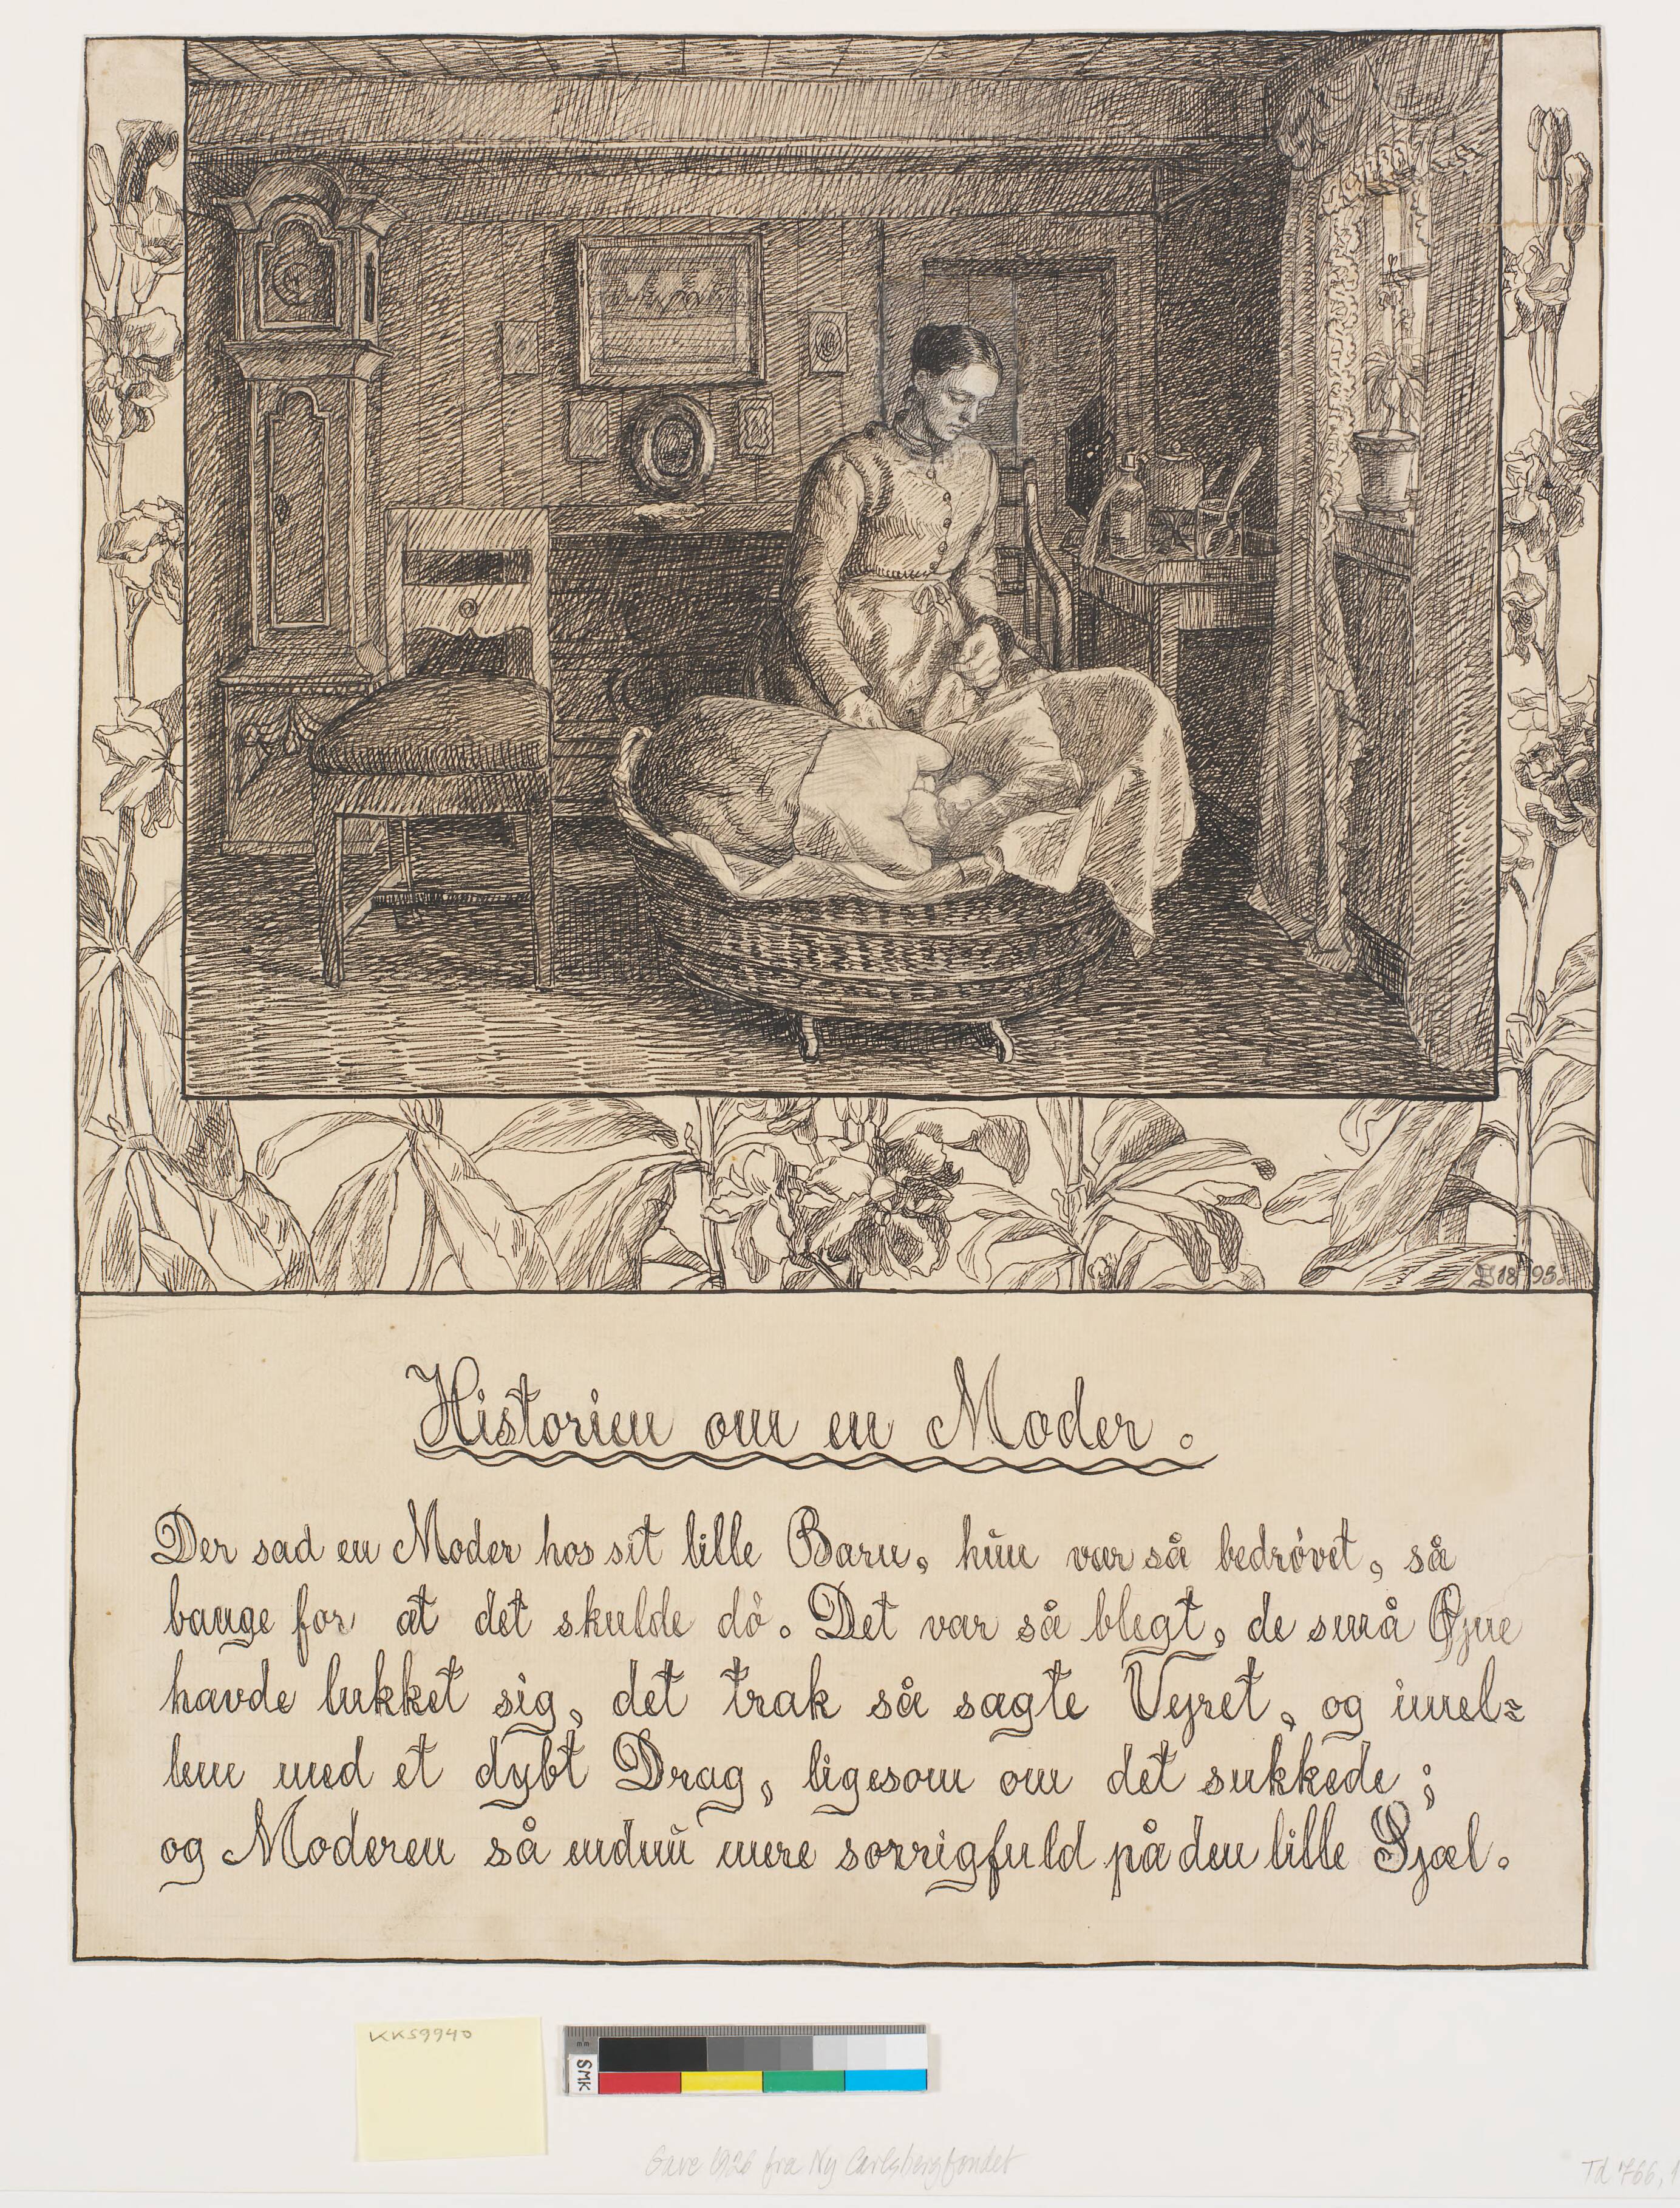 18 93.
Historien om en Moder.
Der sad en Moder hos sit lille Barn, hun var så bedrøvet, så
bange for at det skulde dø. Det var så blegt, de små Øjne
havde lukket sig, det trak så sagte Vejret, og imel=
lem med et dybt Drag, ligesom om det sukkede;
og Moderen så endnu mere sorrigfuld på den lille Sjæl.
KKS9940
SMK
Gave 1926 fra Ny Carlsbergfondet
Td 766, 1